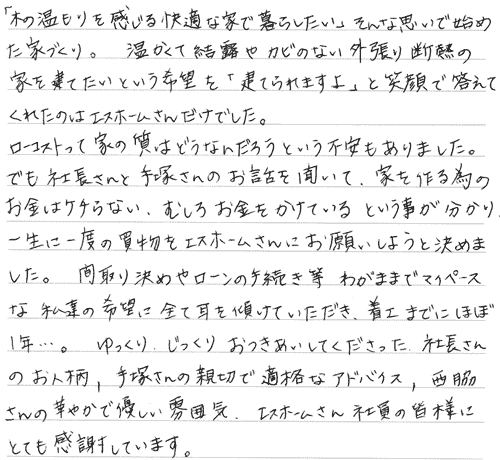 「木の温もりを感じる快適な家で暮らしたい」そんな思いで始め
た家づくり。 温かくて結露やカビのない外張り断熱の
家を建てたいという希望を「建てられますよ」と笑顔で答えて
くれたのはエスホームさんだけでした。
ローコストって家の質はどうなんだろうという不安もありました。
でも社長さんと手塚さんのお話を聞いて、家を作る為の
お金はケチらない、むしろお金をかけているという事が分かり、
一生に一度の買物をエスホームさんにお願いしようと決めま
した。 間取り決めやローンの手続き等 わがままでマイペース
な私達の希望に全て耳を傾けていただき、着工までにほぼ
1年…。 ゆっくり、じっくりおつきあいしてくださった、社長さん
のお人柄、手塚さんの親切で適格なアドバイス、西脇
さんの華やかで優しい雰囲気、エスホームさん社員の皆様に
とても感謝しています。